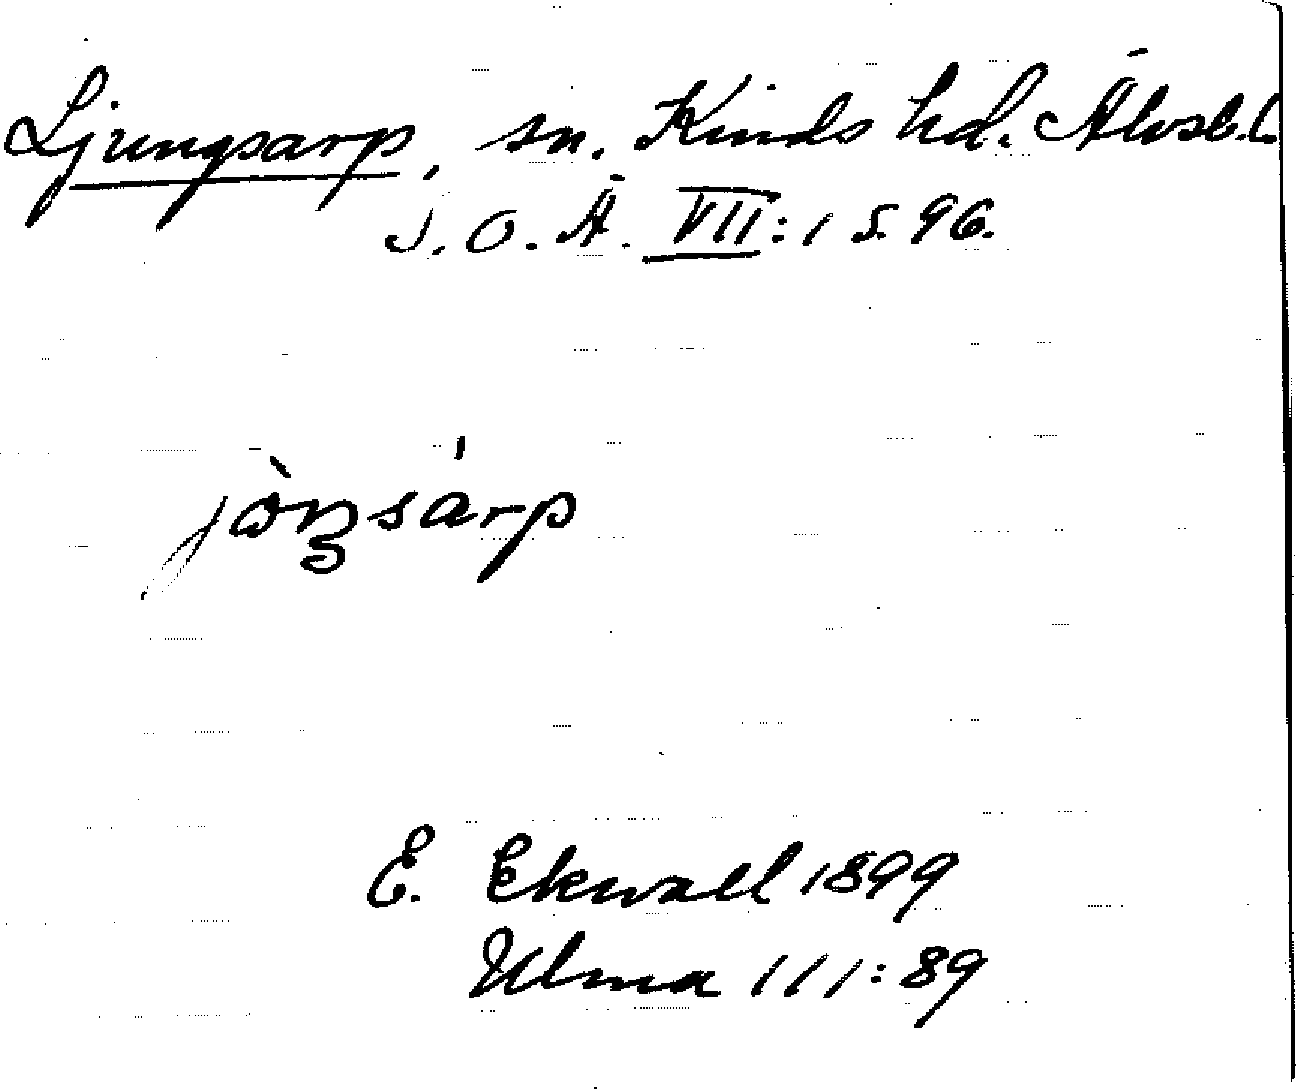 Ljungsarp, sn. Kinds hd. Älvsb. l.
S. O. Ä. VII: 1 s. 96.
jòŋsárp
E. Ekwall 1899
Ulma 111:89